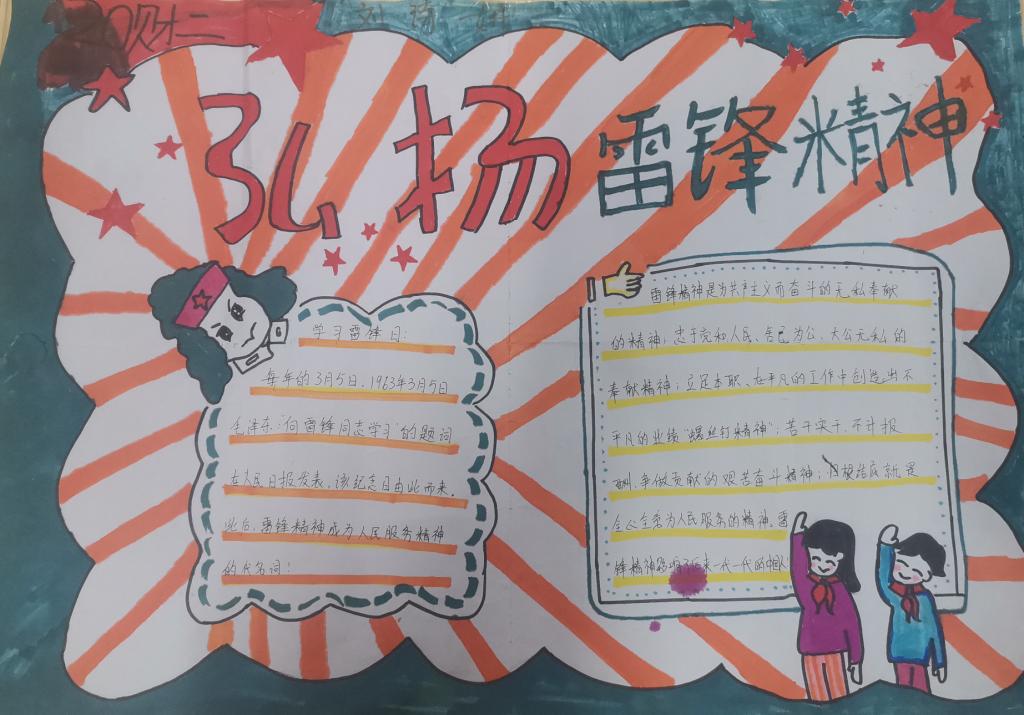 弘扬雷锋精神
学习雷锋日:
每年的3月5日,1963年3月5日
毛泽东:“向雷锋同志学习”的题词
在人民日报发表,该纪念日由此而来。
此后,雷锋精神成为人民服务精神
的代名词!
雷锋精神是为共产主义而奋斗的无私奉献
的精神;忠于党和人民、舍己为公、大公无私的
奉献精神;立足本职、在平凡的工作中创造出不
平凡的业绩“螺丝钉精神”;苦干实干、不计报
酬,争做贡献的艰苦奋斗精神;归根结底就是
全心全意为人民服务的精神,雷
锋精神影响了后来一代一代的中国人